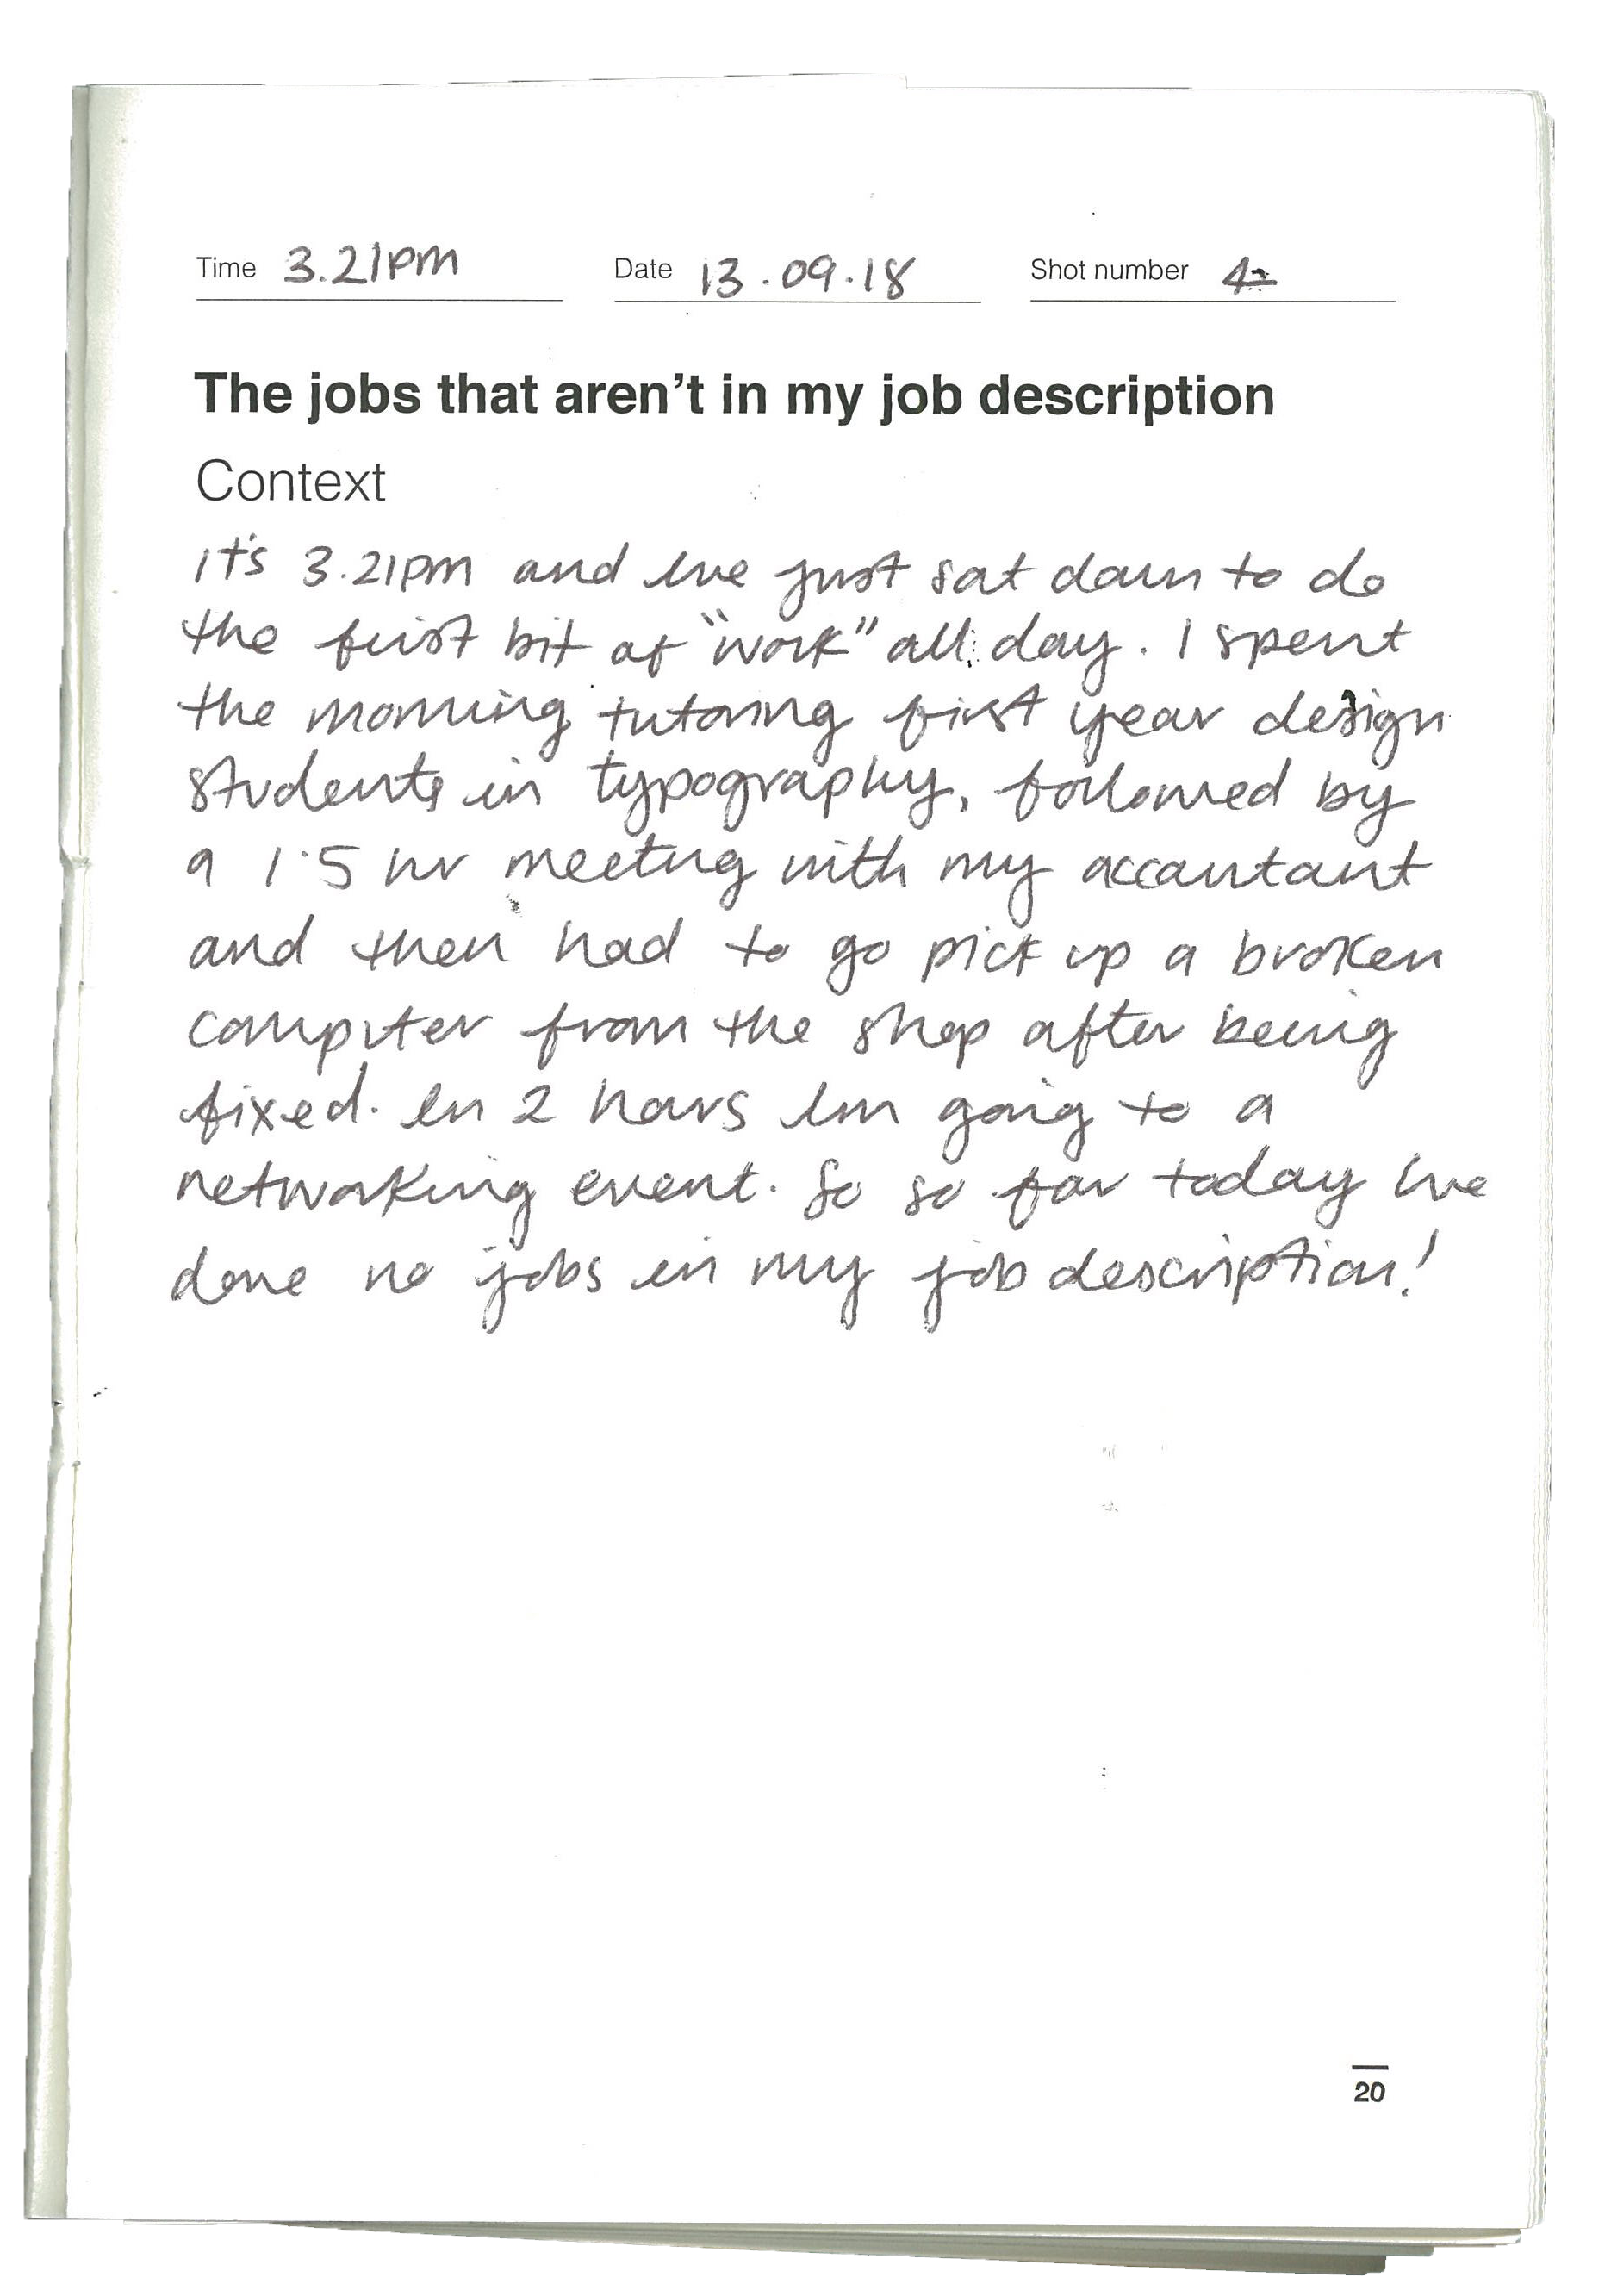 Time 3.21pm Date 13.09.18 Shot number
The jobs that aren't in my job description
Context
It's 3.21pm and I've just sat down to do
the first bit of "work" all day. I spent
the morning tutoring first year design
students in typography, followed by
a 1.5 hr meeting with my accountant
and then had to go pick up a broken
computer from the shop after being
fixed. In 2 hours I'm going to a
networking event. So so far today I've
done no jobs in my job description!
20